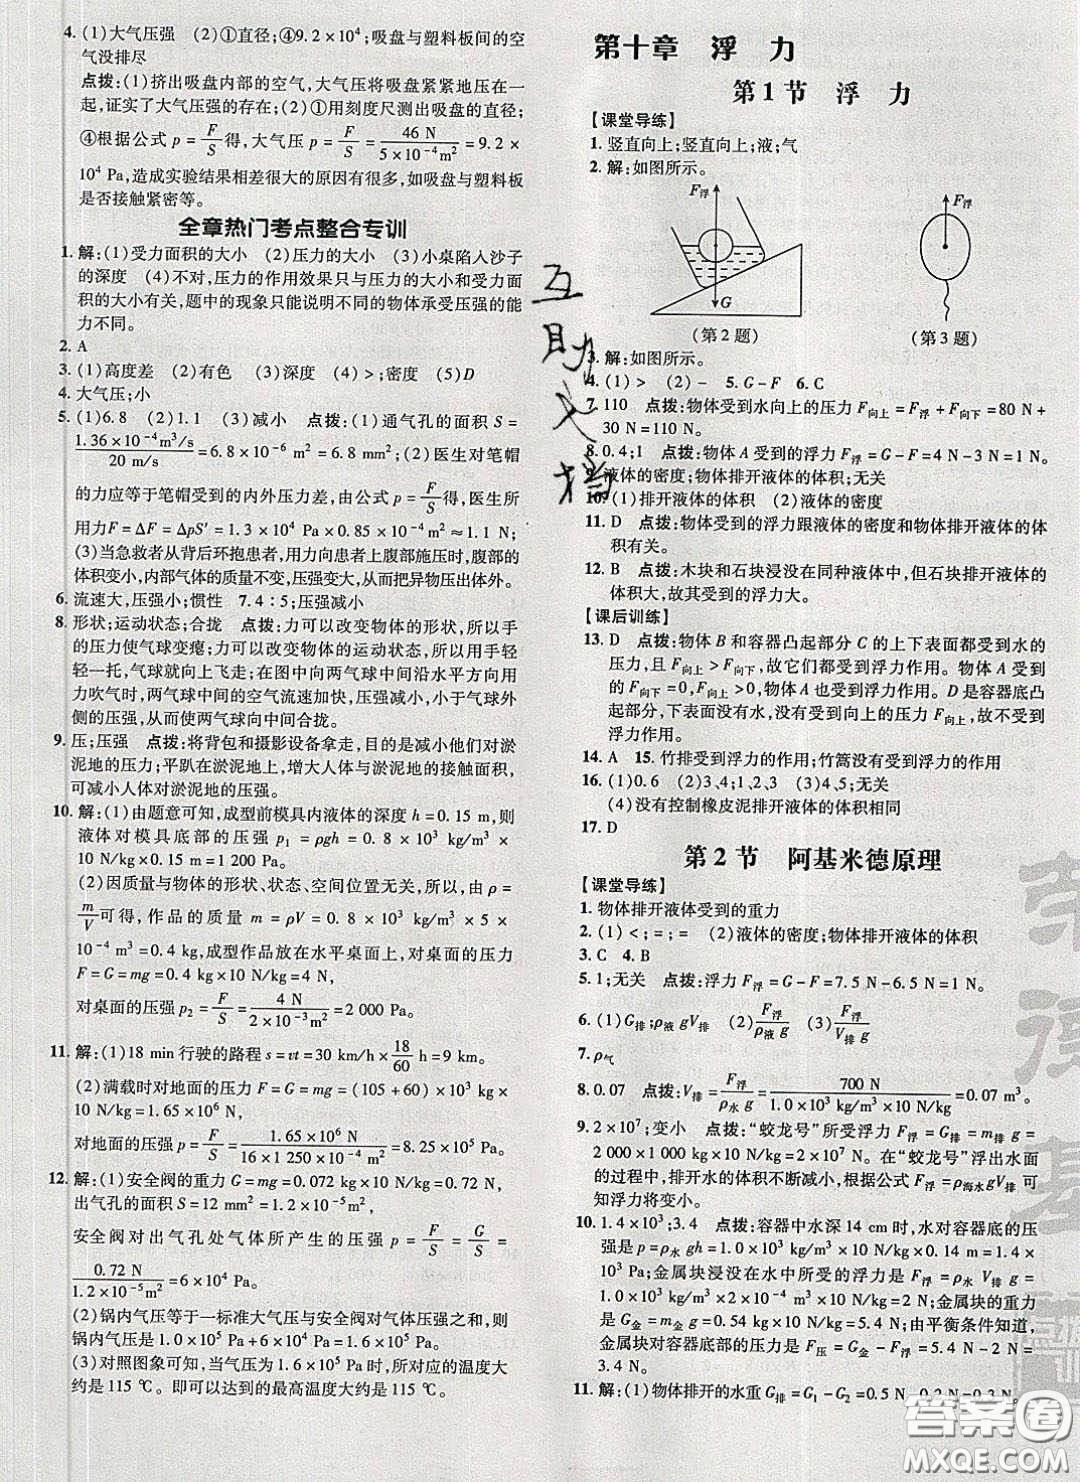 4. (1)大气压强　(2)①直径;④9.2×10⁴;吸盘与塑料板间的空
气没排尽
点拨:(1)挤出吸盘内部的空气,大气压将吸盘紧紧地压在一
起,证实了大气压强的存在;(2)①用刻度尺测出吸盘的直径;
④根据公式 p=F/S得,大气压 p=F/S=46 N/(5×10⁻⁴m²)=9.2×
10⁴ Pa,造成实验结果相差很大的原因有很多,如吸盘与塑料板
是否接触紧密等。
全章热门考点整合专训
1. 解:(1)受力面积的大小　(2)压力的大小　(3)小桌陷入沙子
的深度　(4)不对,压力的作用效果只与压力的大小和受力面
积的大小有关,题中的现象只能说明不同的物体承受压强的能
力不同。
2. A
3. (1)高度差　(2)有色　(3)深度　(4)>;密度　(5)D
4. 大气压;小
5. (1)6.8　(2)1.1　(3)减小　点拨:(1)通气孔的面积 S=
1.36×10⁻⁴m³/s/(20 m/s)=6.8×10⁻⁶ m²=6.8 mm²;(2)医生对笔帽
的力应等于笔帽受到的内外压力差,由公式 p=F/S得,医生所
用力F=ΔF=ΔpS′=1.3×10⁴ Pa×0.85×10⁻⁴m²≈1.1 N;
(3)当急救者从背后环抱患者,用力向患者上腹部施压时,腹部的
体积变小,内部气体的质量不变,压强变大,从而把异物压出体外。
6. 流速大,压强小;惯性　7. 4∶5;压强减小
8. 形状;运动状态;合拢　点拨:力可以改变物体的形状,所以用手
的压力使气球变瘪;力可以改变物体的运动状态,所以用手轻
轻一托,气球就向上飞走;在图中向两气球中间沿水平方向用
力吹气时,两气球中间的空气流速加快,压强减小,小于气球外
侧的压强,从而使两气球向中间合拢。
9. 压;压强　点拨:将背包和摄影设备拿走,目的是减小他们对淤
泥地的压力;平趴在淤泥地上,增大人体与淤泥地的接触面积,
可减小人体对淤泥地的压强。
10. 解:(1)由题意可知,成型前模具内液体的深度 h=0.15 m,则
液体对模具底部的压强 p₁=ρgh=0.8×10³ kg/m³×
10 N/kg×0.15 m=1 200 Pa。
(2)因质量与物体的形状、状态、空间位置无关,所以,由 ρ=
m/V可得,作品的质量 m=ρV=0.8×10³ kg/m³×5×
10⁻⁴ m³=0.4 kg,成型作品放在水平桌面上,对桌面的压力
F=G=mg=0.4 kg×10 N/kg=4 N,
对桌面的压强 p₂=F/S=4 N/(2×10⁻³m²)=2 000 Pa。
11. 解:(1)18 min 行驶的路程 s=vt=30 km/h×18/60 h=9 km。
(2)满载时对地面的压力 F=G=mg=(105+60)×10³ kg×
10 N/kg=1.65×10⁶ N,
对地面的压强 p=F/S=1.65×10⁶ N/(16×1 250×10⁻⁴m²)=8.25×10⁵ Pa。
12. 解:(1)安全阀的重力 G=mg=0.072 kg×10 N/kg=0.72 N,
出气孔的面积 S=12 mm²=1.2×10⁻⁵ m²,
安全阀对出气孔处气体所产生的压强 p=F/S=G/S=
0.72 N/(1.2×10⁻⁵m²)=6×10⁴ Pa;
(2)锅内气压等于一标准大气压与安全阀对气体压强之和,则
锅内气压是 1.0×10⁵Pa+6×10⁴ Pa=1.6×10⁵ Pa;
(3)对照图象可知,当气压是 1.6×10⁵Pa 时,所对应的温度大
约是 115 ℃。即可以达到的最高温度大约是 115 ℃。
第十章　浮　力
第1节　浮　力
【课堂导练】
1. 竖直向上;竖直向上;液;气
2. 解:如图所示。
F浮
G
F浮
(第2题)
(第3题)
3. 解:如图所示。
4. (1)>　(2)-　5. G-F　6. C
7. 110　点拨:物体受到水向上的压力 F向上=F浮+F向下=80 N+
30 N=110 N。
8. 0.4;1　点拨:物体 A 受到的浮力 F浮=G-F=4 N-3 N=1 N。
9. 液体的密度;物体排开液体的体积;无关
10. (1)排开液体的体积　(2)液体的密度
11. D　点拨:物体受到的浮力跟液体的密度和物体排开液体的体
积有关。
12. B　点拨:木块和石块浸没在同种液体中,但石块排开液体的体
积大,故其受到的浮力大。
【课后训练】
13. D　点拨:物体 B 和容器凸起部分 C 的上下表面都受到水的
压力,且 F向上>F向下,故它们都受到浮力作用。物体 A 受到
的 F向下=0,F向上>0,物体A也受到浮力作用。D 是容器底凸
起部分,下表面没有水,没有受到向上的压力 F向上,则不受浮
力作用。
14. A　15. 竹排受到浮力的作用;竹篙没有受到浮力的作用
16. (1)0.6　(2)3、4;1、2　(3)4、5;无关
(4)没有控制橡皮泥排开液体的体积相同
17. D
第2节　阿基米德原理
【课堂导练】
1. 物体排开液体受到的重力
2. (1)<;=;=　(2)液体的密度;物体排开液体的体积
3. C　4. B
5. 1;无关　点拨:浮力 F浮=G-F=7.5 N-6.5 N=1 N。
6. (1)G排;ρ液 gV排　(2)F浮/(ρ液 g)　(3)F浮/(V排 g)
7. ρ气
8. 0.07　点拨:V排=F浮/(ρ水 g)=700 N/(1.0×10³ kg/m³×10 N/kg)=0.07 m³。
9. 2×10⁷;变小　点拨:“蛟龙号”所受浮力 F浮=G排=m排 g=
2 000×1 000 kg×10 N/kg=2×10⁷ N;在“蛟龙号”浮出水面
的过程中,排开水的体积不断减小,根据公式 F浮=ρ海水gV排可
知浮力将变小。
10. 1.4×10³;3.4　点拨:容器中水深 14 cm 时,水对容器底的压
强是 p=ρ水 gh=1.0×10³ kg/m³×10 N/kg×0.14 m=1.4×
10³ Pa;金属块浸没在水中所受的浮力是 F浮=G排=m排 g=
ρ水 gV排=1.0×10³ kg/m³×2×10⁻⁴ m³×10 N/kg=2 N;金属块的重力
是 G金=m金 g=0.54 kg×10 N/kg=5.4 N;由平衡条件知道,
金属块对容器底部的压力是 F压=G金-F浮=5.4 N-2 N=
3.4 N。
11. 解:(1)物体排开的水重 G排=G₁-G₂=0.5 N-0.2 N=0.3 N。
互
助
文
档
荣
德
基
答案圈
MXQE.COM